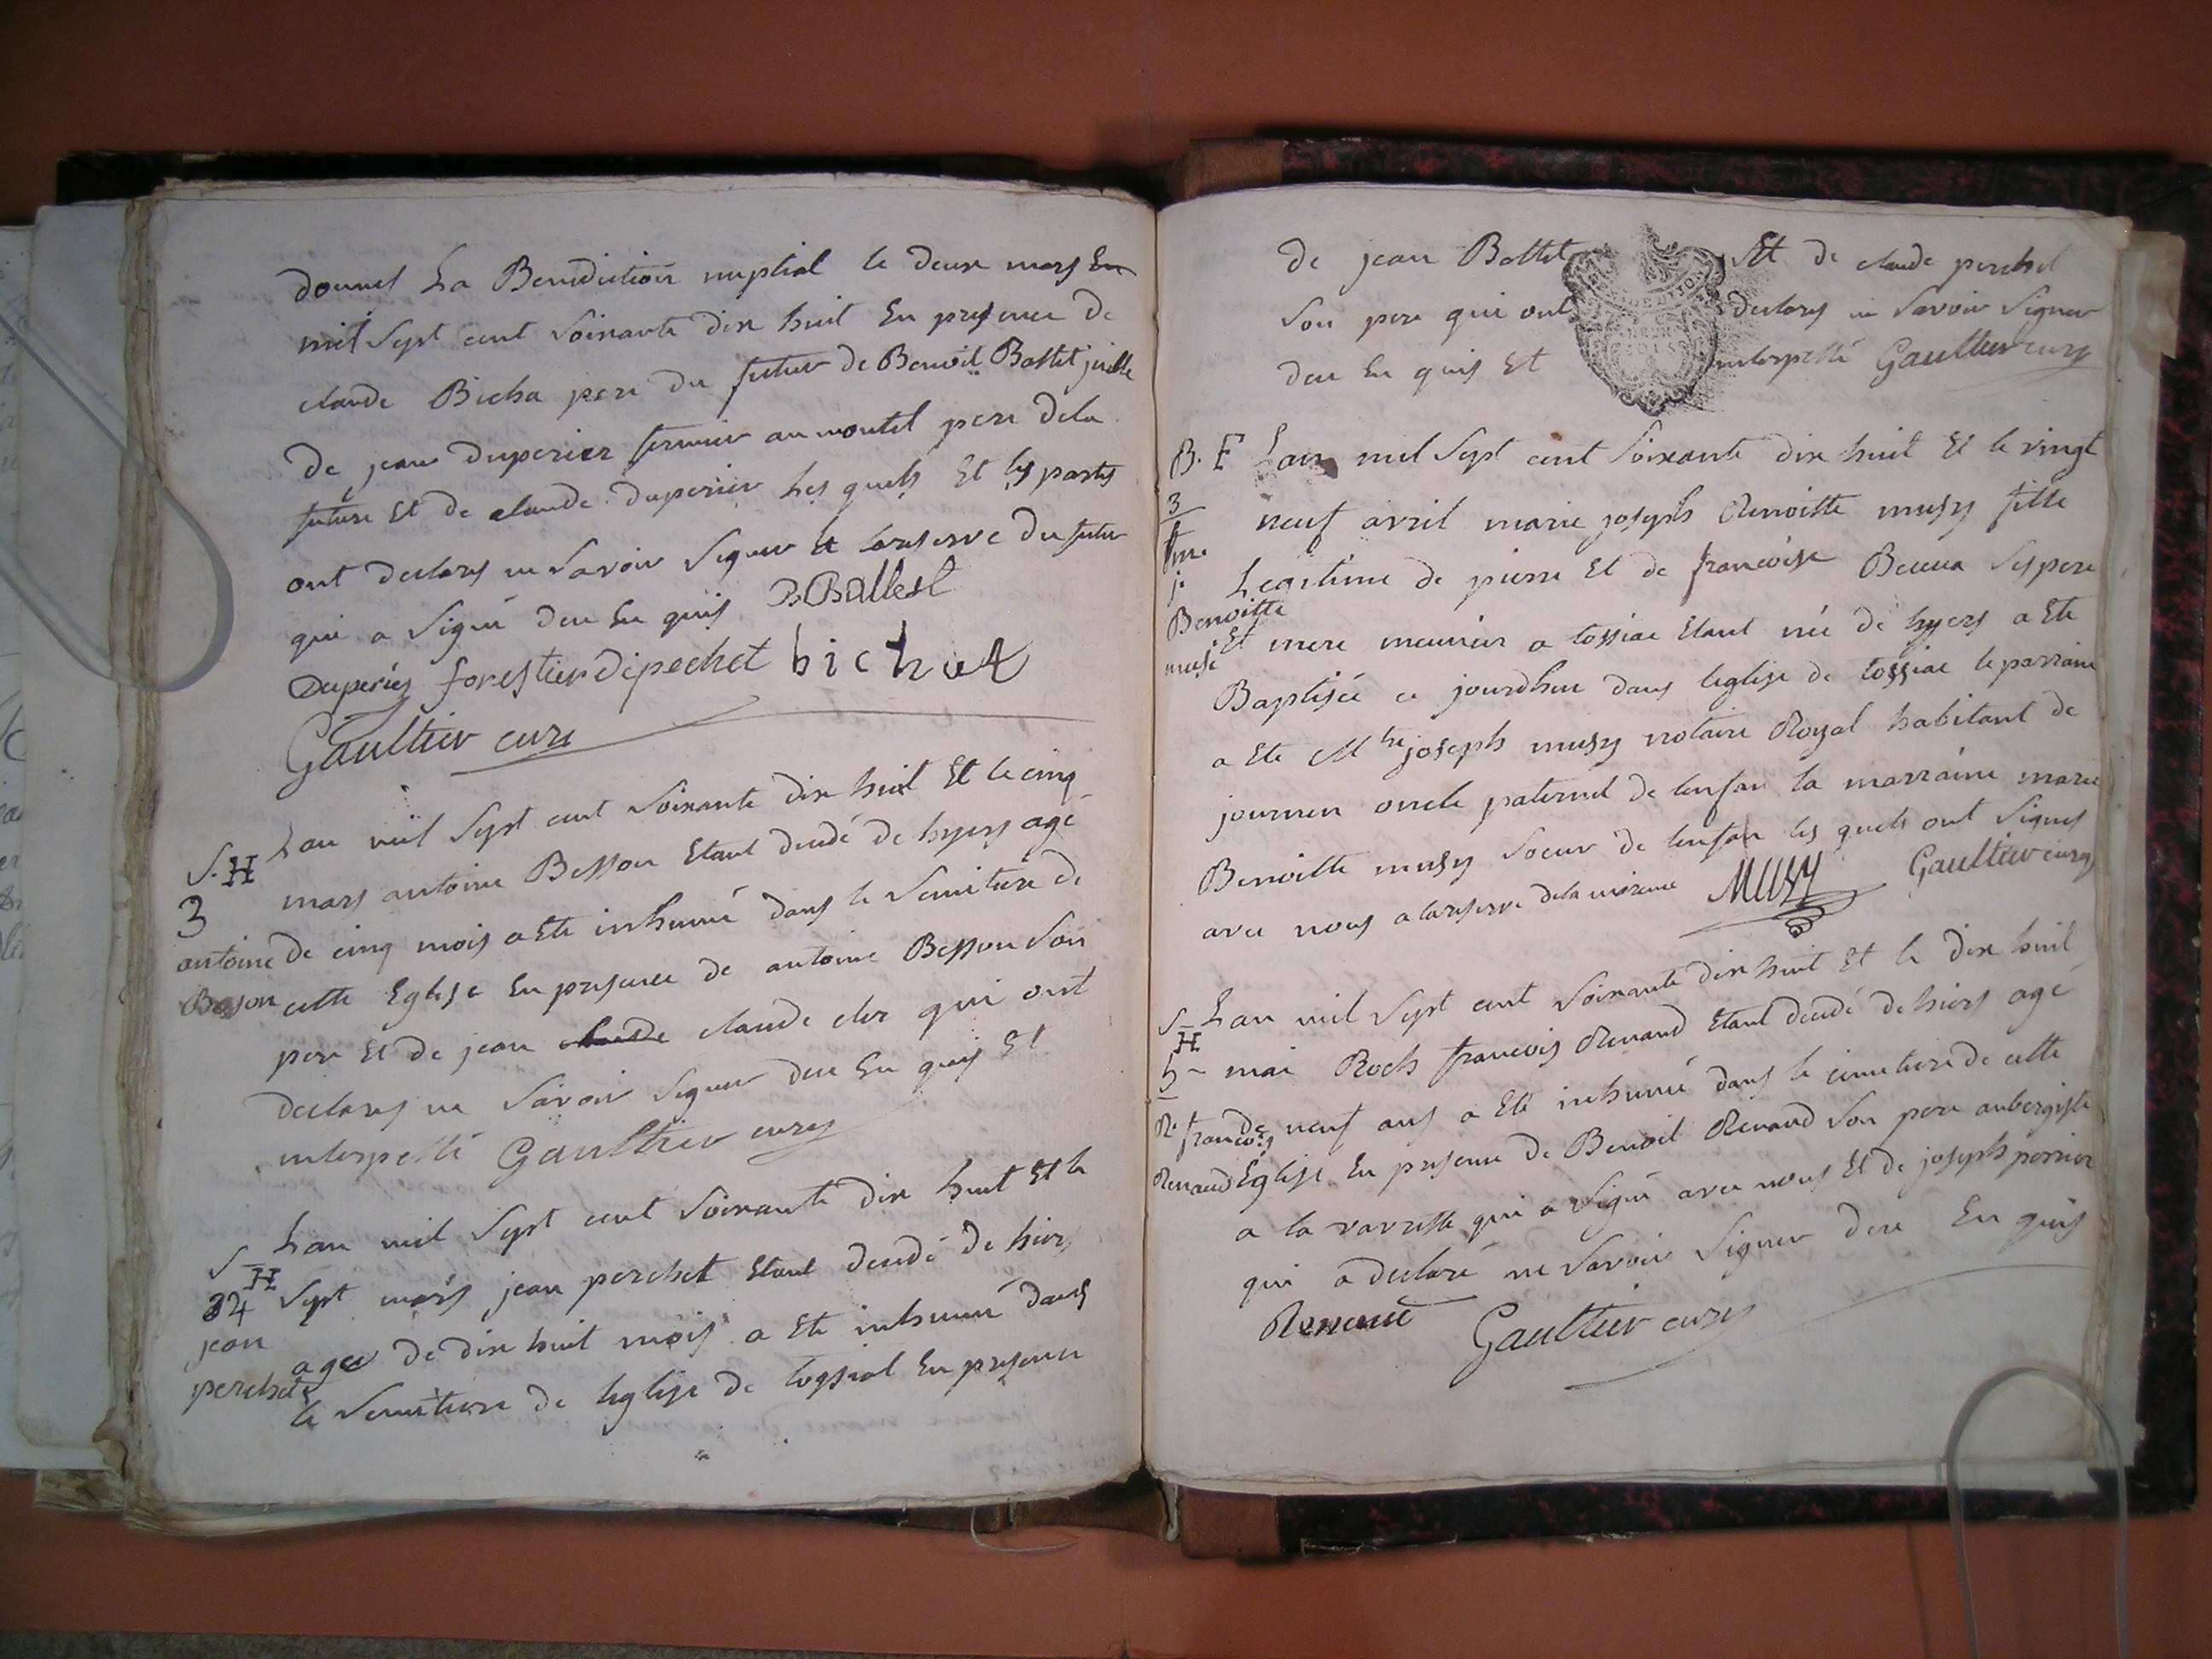 donnes La Benediction nuptial le deux mars En
mil sept cent soixante dix huit En presence de
claude Bicha pere du futur de Benoit Battet
de jean duperier fermier au montel pere dela
future Et de claude duperier les quels Et les partis
ont declares ne savoir signer a lareserve du futur
qui a signé deu En quis BBallest
duperies forestier dipechet bichat
Gaultier cure
S. H Lan mil sept cent soixante dix huit Et le cinq
3 mars antoine Besson Etant decedé de hyers agé
antoine de cinq mois a Ete inhumé dans le semitiere de
Beson cette Eglise En presence de antoine Besson son
pere Et de jean claude claude cler qui ont
declares ne savoir signer deu En quis Et
interpellé Gaultier cure
S Lan mil sept cent soixante dix huit Et le
H
4 sept mars jean perchet Etant decedé de hiers
jean
ager de dix huit mois a Ete inhumé dans
perchet
le semitiere de leglise de tossiat En presence
de jean Bottet Et de claude perchet
son pere qui ont declares ne savoir signer
deu En quis Et interpellé Gaultier cure
B. F Lan mil sept cent soixante dix huit Et le vingt
3
neuf avril marie joseph Benoitte musy fille
m.
j. Legitime de pierre Et de francoise Besson ses pere
Benoitte
Et mere meunier a tossiac Etant née de hyers a Ete
muse
Baptisée ce jourdhui dans leglise de tossiac le parrain
a Ete Mtre joseph musy notaire Royal habitant de
journen oncle paternel de lenfan la marraine marie
Benoitte musy soeur de lenfan les quels ont signes
avec nous a lareserve dela marene MUSY Gaultier cure
S. Lan mil sept cent soixante dix huit Et le dix huit
H
5 mai Roch francois Renaud Etant decedé de hiers agé
R. de neuf ans a Ete inhumé dans le cimetiere de cette
francois
Renaud Eglise En presence de Benoit Renaud son pere aubergiste
a la vavrette qui a signé avec nous Et de joseph perrier
qui a declaré ne savoir signer deu En quis
Renaud Gaultier cure